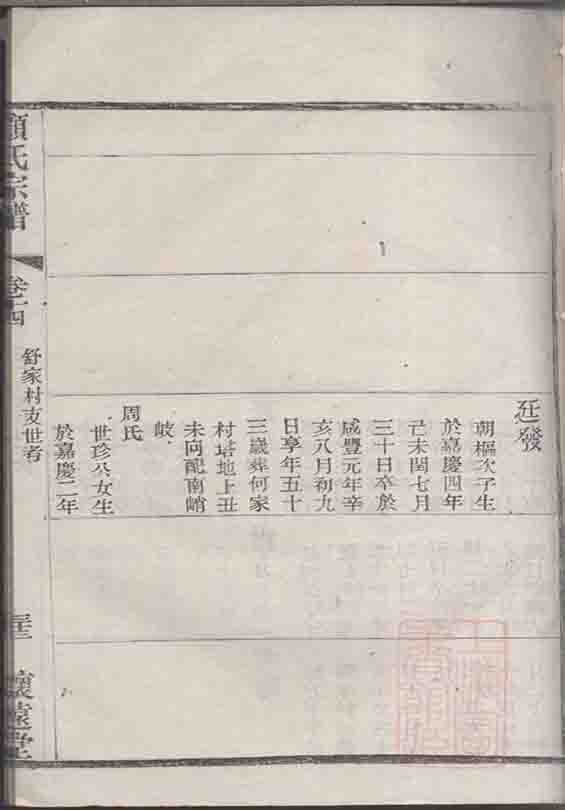 廷發
朝樞次子生
於嘉慶四年
己未閏七月
三十日卒於
咸豐元年辛
亥八月初九
日享年五十
三歲葬何家
村塔地上丑
未向配南峭
岐
周氏
世珍公女生
於嘉慶二年
顧氏宗譜
卷十四
舒家村支世者
懷遠堂